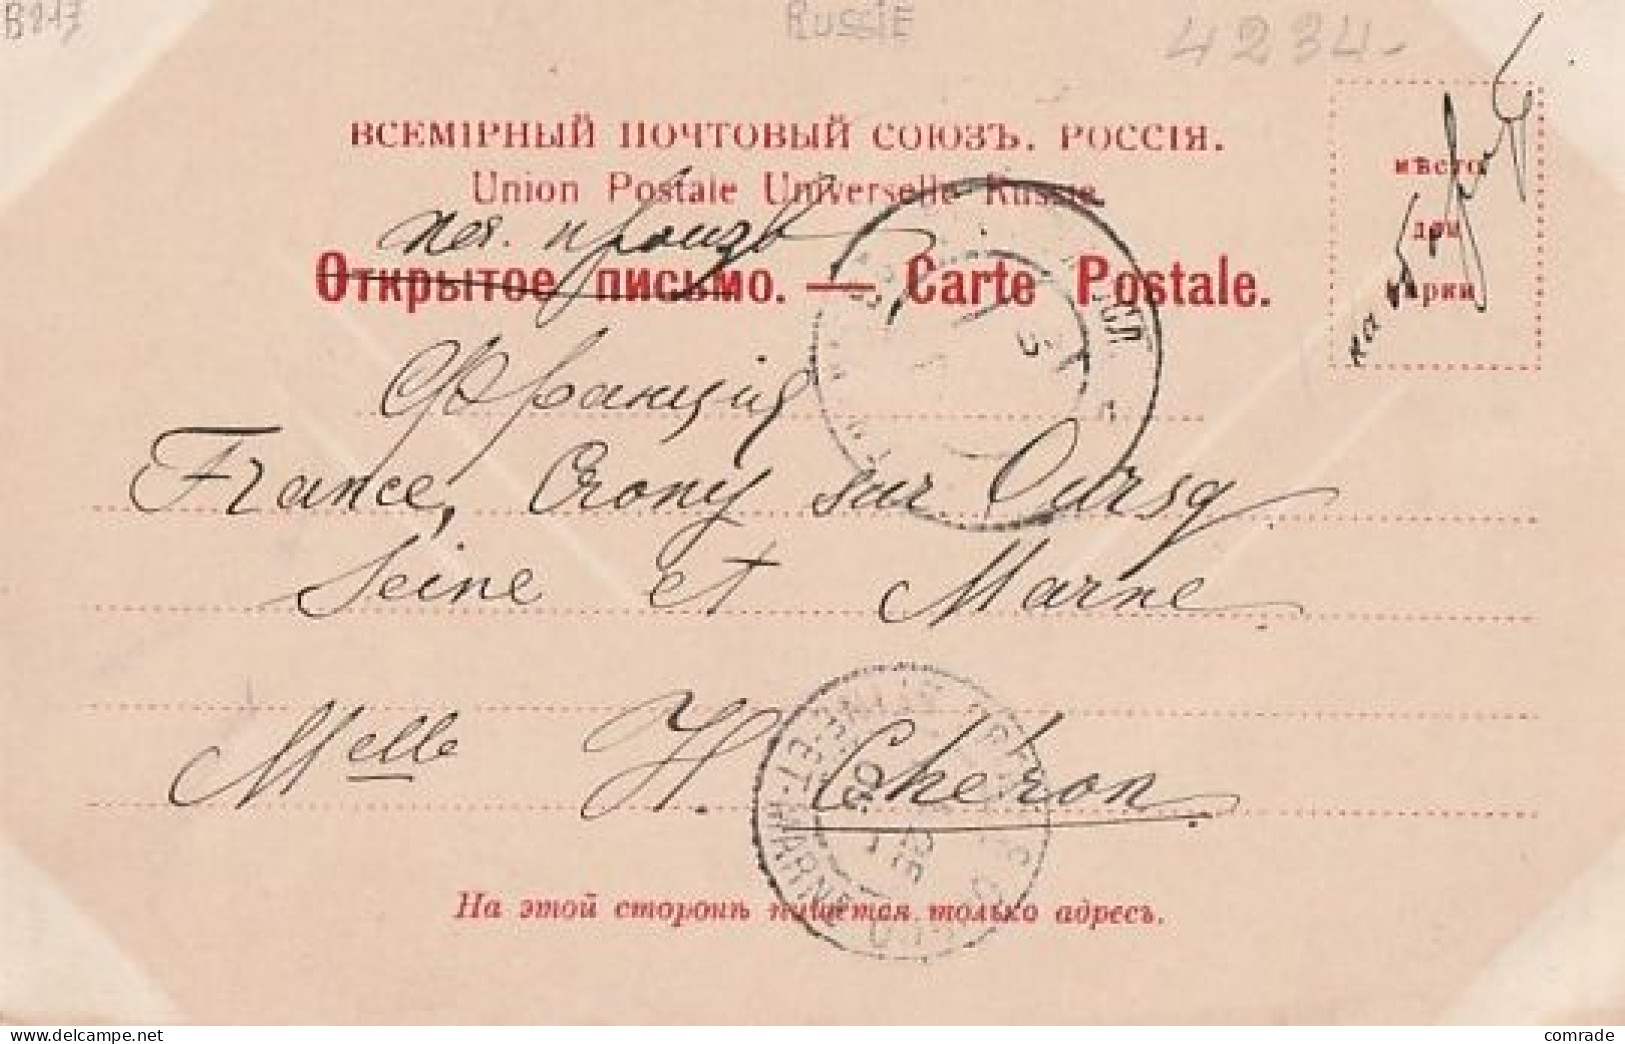 B213
RUSSIE
4234-
ВСЕМІРНЫЙ ПОЧТОВЫЙ СОЮЗЪ. РОССІЯ.
Union Postale Universelle Russie.
мѣсто
для
марки
Печ. произв
Открытое письмо. — Carte Postale.
Франція
France, Crouy sur Ourcq
Seine et Marne
Melle H. Chéron
SEINE-ET-MARNE
На этой сторонѣ пишется только адресъ.
https://www.delcampe.net
comrade